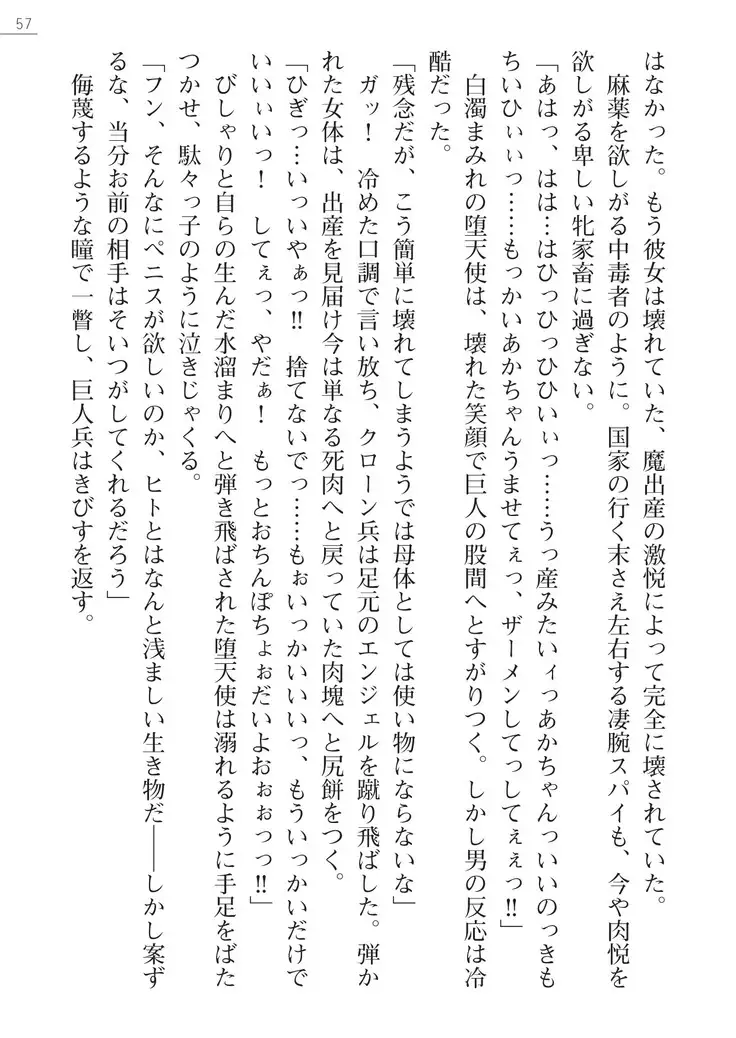 57
はなかった。もう彼女は壊れていた、魔出産の激悦によって完全に壊されていた。
麻薬を欲しがる中毒者のように。国家の行く末さえ左右する凄腕スパイも、今や肉悦を
欲しがる卑しい牝家畜に過ぎない。
「あはっ、はは…はひっひっひひいぃっ……うっ産みたいィっあかちゃんっいいのっきも
ちいひぃぃっ……もっかいあかちゃんうませてぇっ、ザーメンしてっしてぇぇっ‼」
白濁まみれの堕天使は、壊れた笑顔で巨人の股間へとすがりつく。しかし男の反応は冷
酷だった。
「残念だが、こう簡単に壊れてしまうようでは母体としては使い物にならないな」
ガッ！　冷めた口調で言い放ち、クローン兵は足元のエンジェルを蹴り飛ばした。弾か
れた女体は、出産を見届け今は単なる死肉へと戻っていた肉塊へと尻餅をつく。
「ひぎっ…いっいやぁっ‼　捨てないでっ……もぉいっかいいいっ、もういっかいだけで
いいぃいっ！　してぇっ、やだぁ！　もっとおちんぽちょぉだいよおぉぉっっ‼」
びしゃりと自らの生んだ水溜まりへと弾き飛ばされた堕天使は溺れるように手足をばた
つかせ、駄々っ子のように泣きじゃくる。
「フン、そんなにペニスが欲しいのか、ヒトとはなんと浅ましい生き物だ――しかし案ず
るな、当分お前の相手はそいつがしてくれるだろう」
侮蔑するような瞳で一瞥し、巨人兵はきびすを返す。